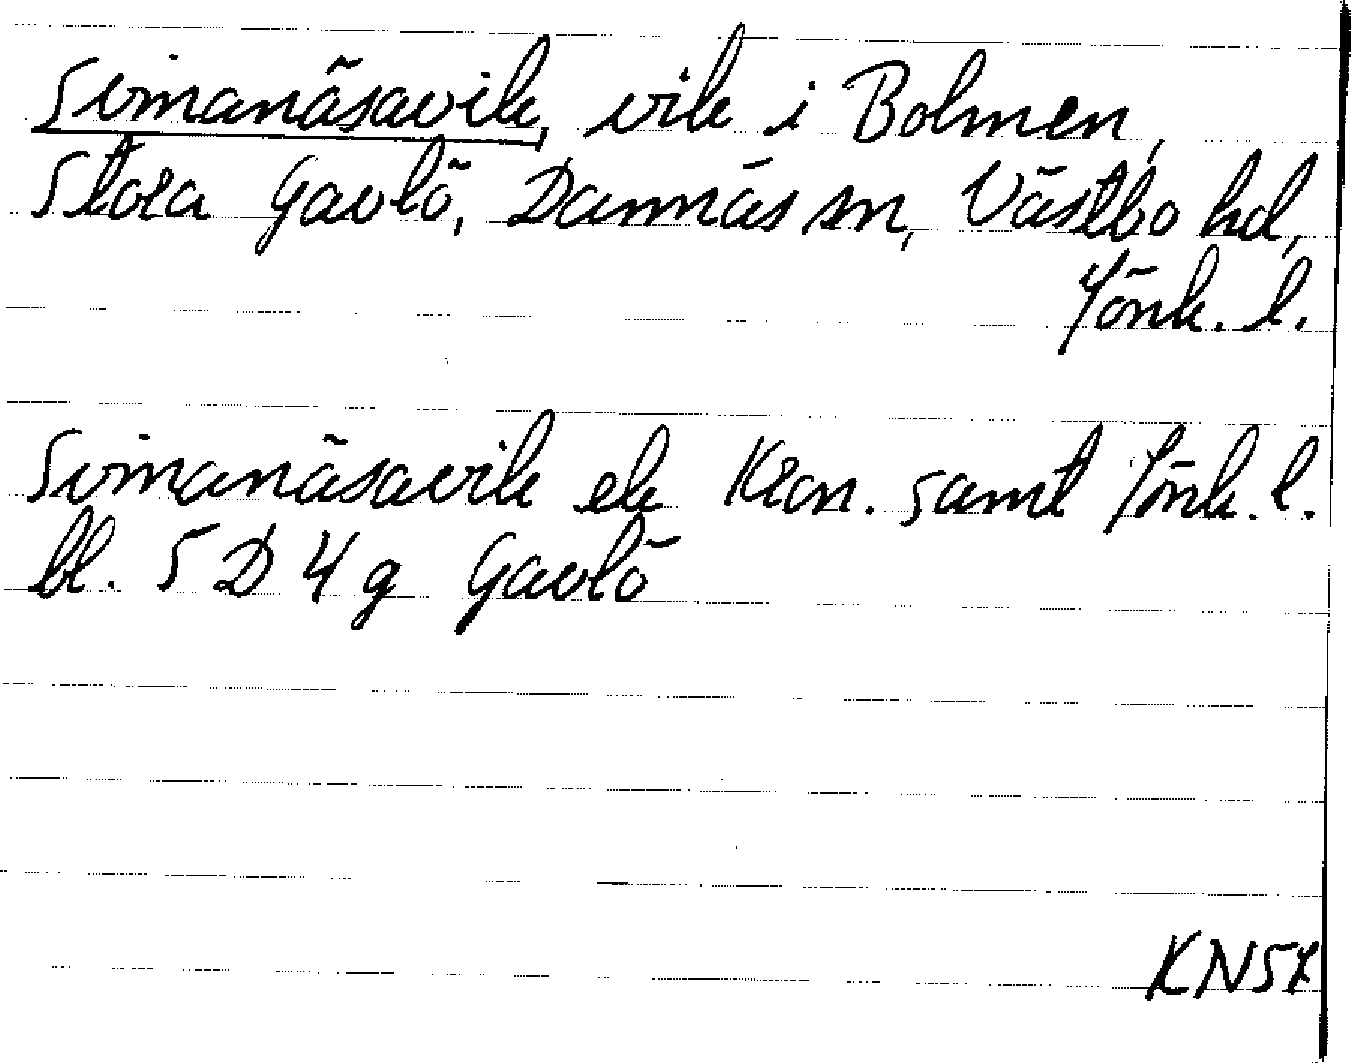 Svinanäsavik, vik i Bolmen,
Stora Gavlö, Dannäs sn, Västbo hd,
Jönk. l.
Svinanäsavik ek Kron. samt Jönk. l.
bl. 5 D 4 g Gavlö
KN57